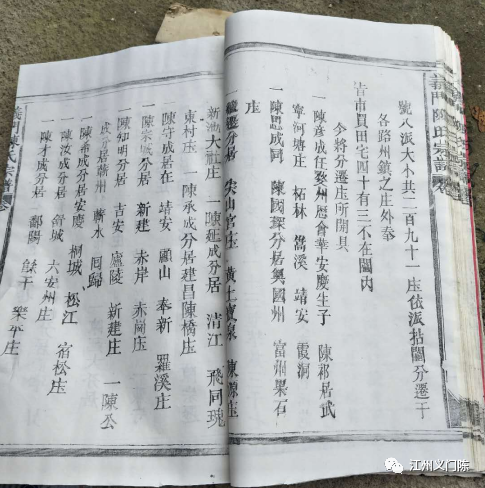 義門陳氏宗譜 卷
號入派大小共二百九十一庄依派拈鬮分遷于
各路州鎮之庄外奉
旨市買田宅四十有三不在鬮內
今將分遷庄所開具
一陳彥成任婺州 會華安慶生子 陳祁居武
寧河塘庄 柘林 嵩溪 靖安 霞洞
一陳思成同 陳國琛分居興國州 富州果石
庄
遷分居 尖山官庄 黃土 泉 東源庄
新池大社庄 一陳延成分居 清江 飛同瑰
東村庄 一陳承成分居建昌陳橋庄
一陳守成居 靖安 顧山 奉新 羅溪庄
一陳家成分居 新建 赤岸 赤岡庄
一陳知明分居 吉安 廬陵 新建庄 一陳公
成分居蘄州 蘄水 同歸
一陳希成分居安慶 桐城 松江 宿松庄
一陳汝成分居 城 六安州庄
一陳才成分居 鄱陽 餘干 樂平庄
義門陳氏宗譜 卷
江州义门陈